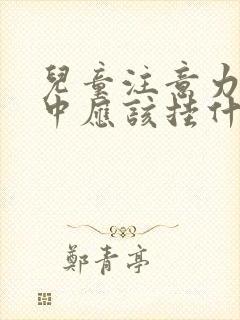 兒童注意力
中應該挂什
鄭青亭